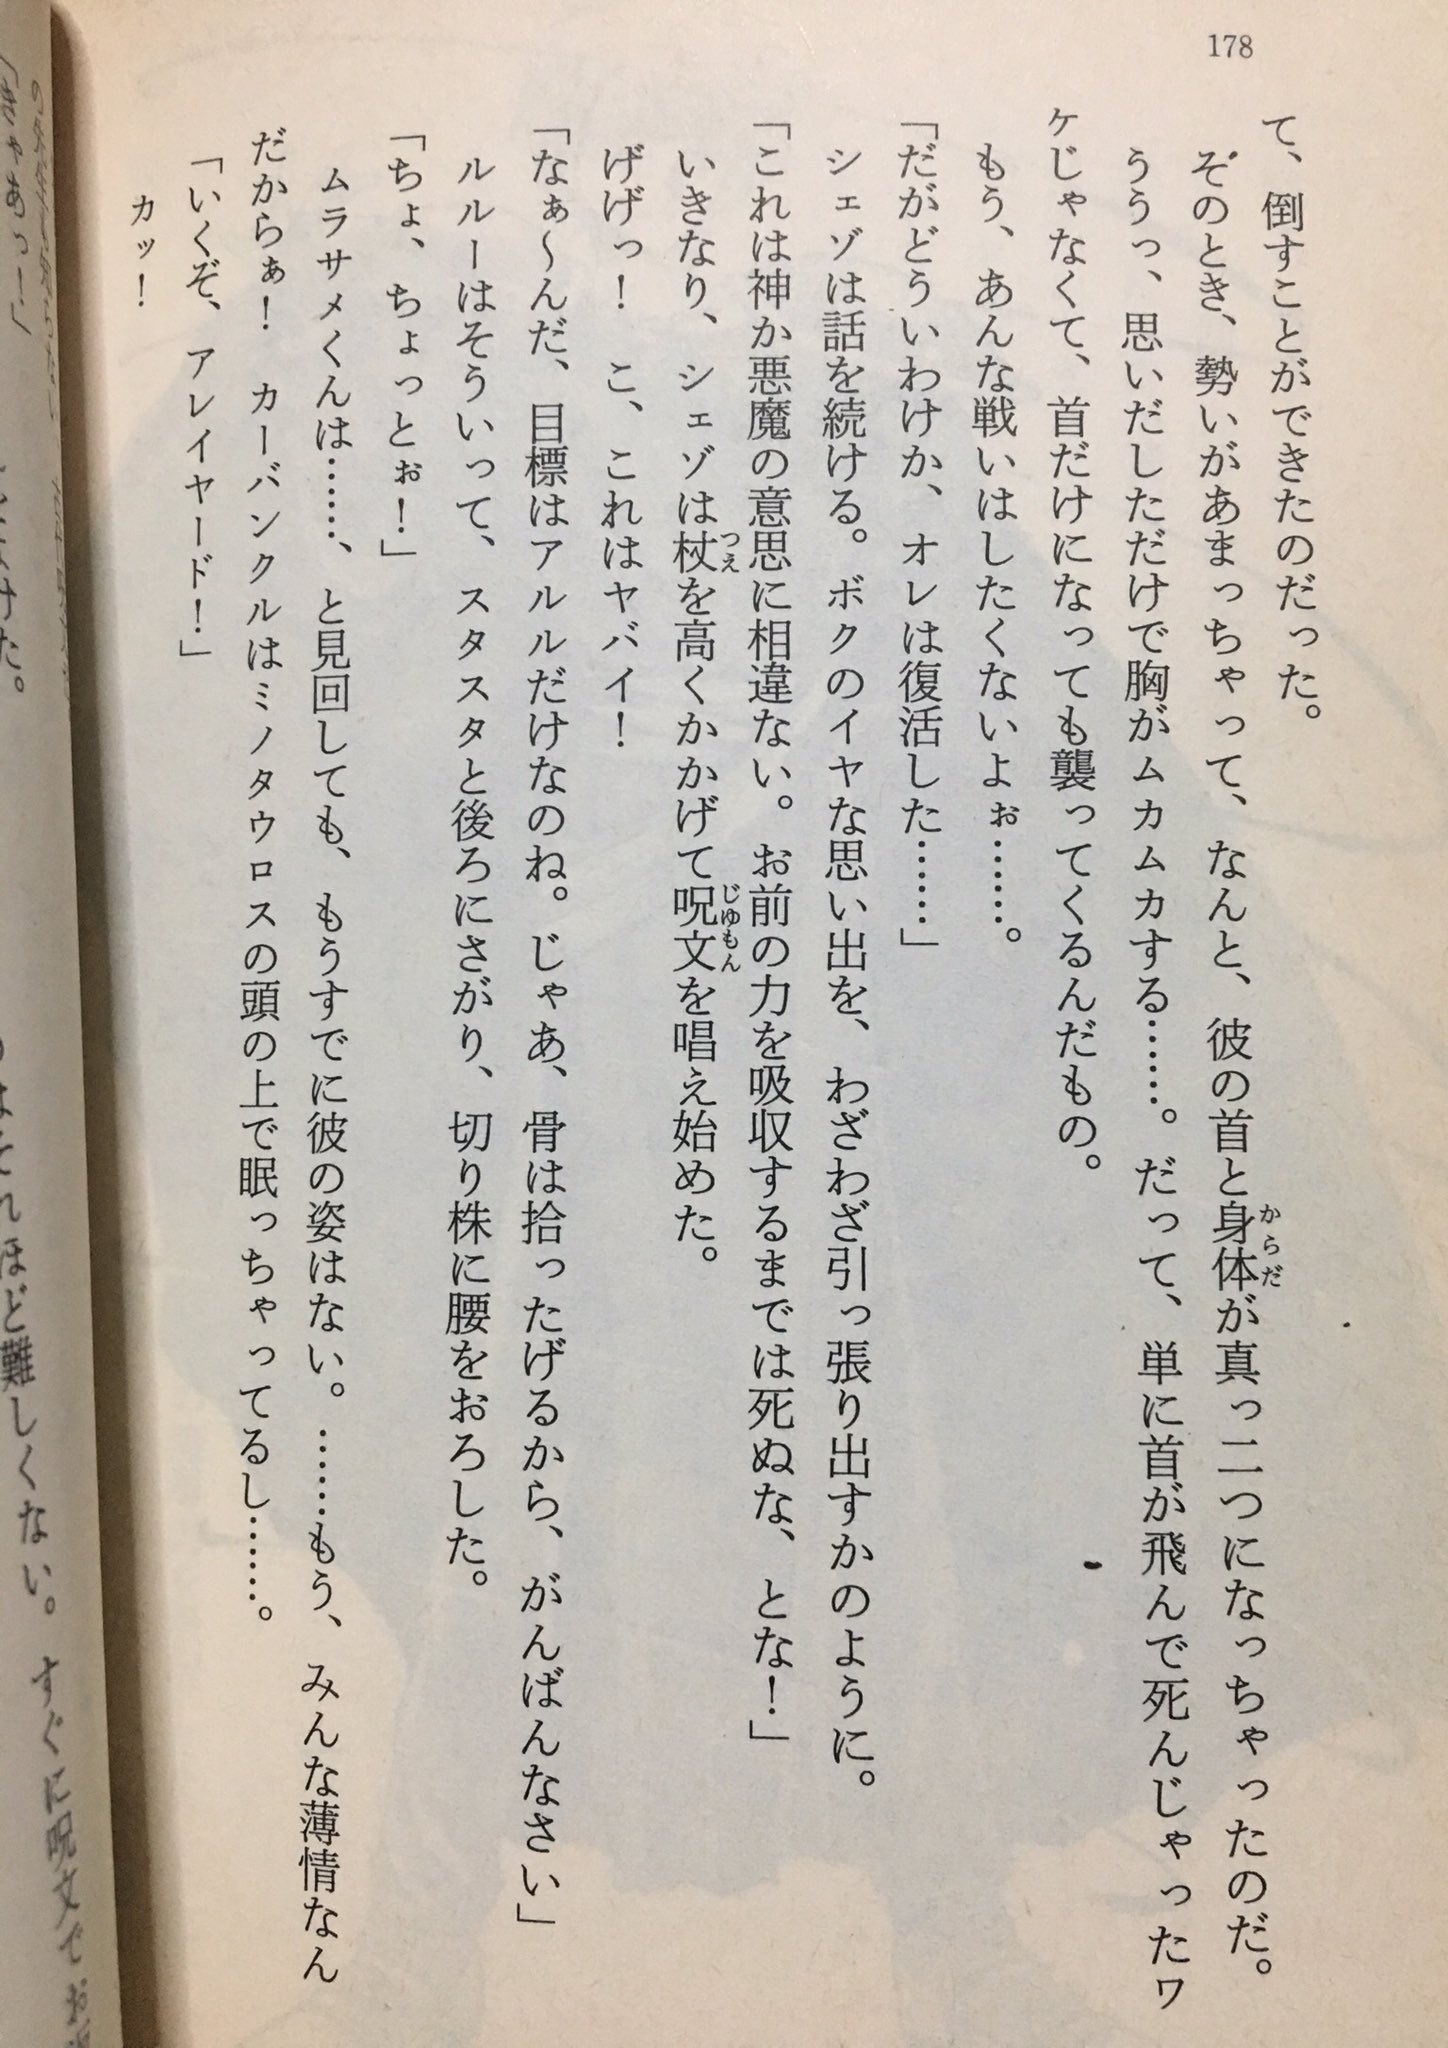 178
て、倒すことができたのだった。
そのとき、勢いがあまっちゃって、なんと、彼の首と身体が真っ二つになっちゃったのだ。
からだ
ううっ、思いだしただけで胸がムカムカする……。だって、単に首が飛んで死んじゃったワ
ケじゃなくて、首だけになっても襲ってくるんだもの。
もう、あんな戦いはしたくないよぉ……。
「だがどういわけか、オレは復活した……」
シェゾは話を続ける。ボクのイヤな思い出を、わざわざ引っ張り出すかのように。
「これは神か悪魔の意思に相違ない。お前の力を吸収するまでは死ぬな、とな！」
いきなり、シェゾは杖を高くかかげて呪文を唱え始めた。
つえ
じゆもん
げげっ！　こ、これはヤバイ！
「なぁ～んだ、目標はアルルだけなのね。じゃあ、骨は拾ったげるから、がんばんなさい」
ルルーはそういって、スタスタと後ろにさがり、切り株に腰をおろした。
「ちょ、ちょっとぉ！」
ムラサメくんは……、と見回しても、もうすでに彼の姿はない。……もう、みんな薄情なん
だからぁ！　カーバンクルはミノタウロスの頭の上で眠っちゃってるし……。
「いくぞ、アレイヤード！」
カッ！
「きゃあっ！」
はそれほど難しくない。すぐに呪文でお
けた。